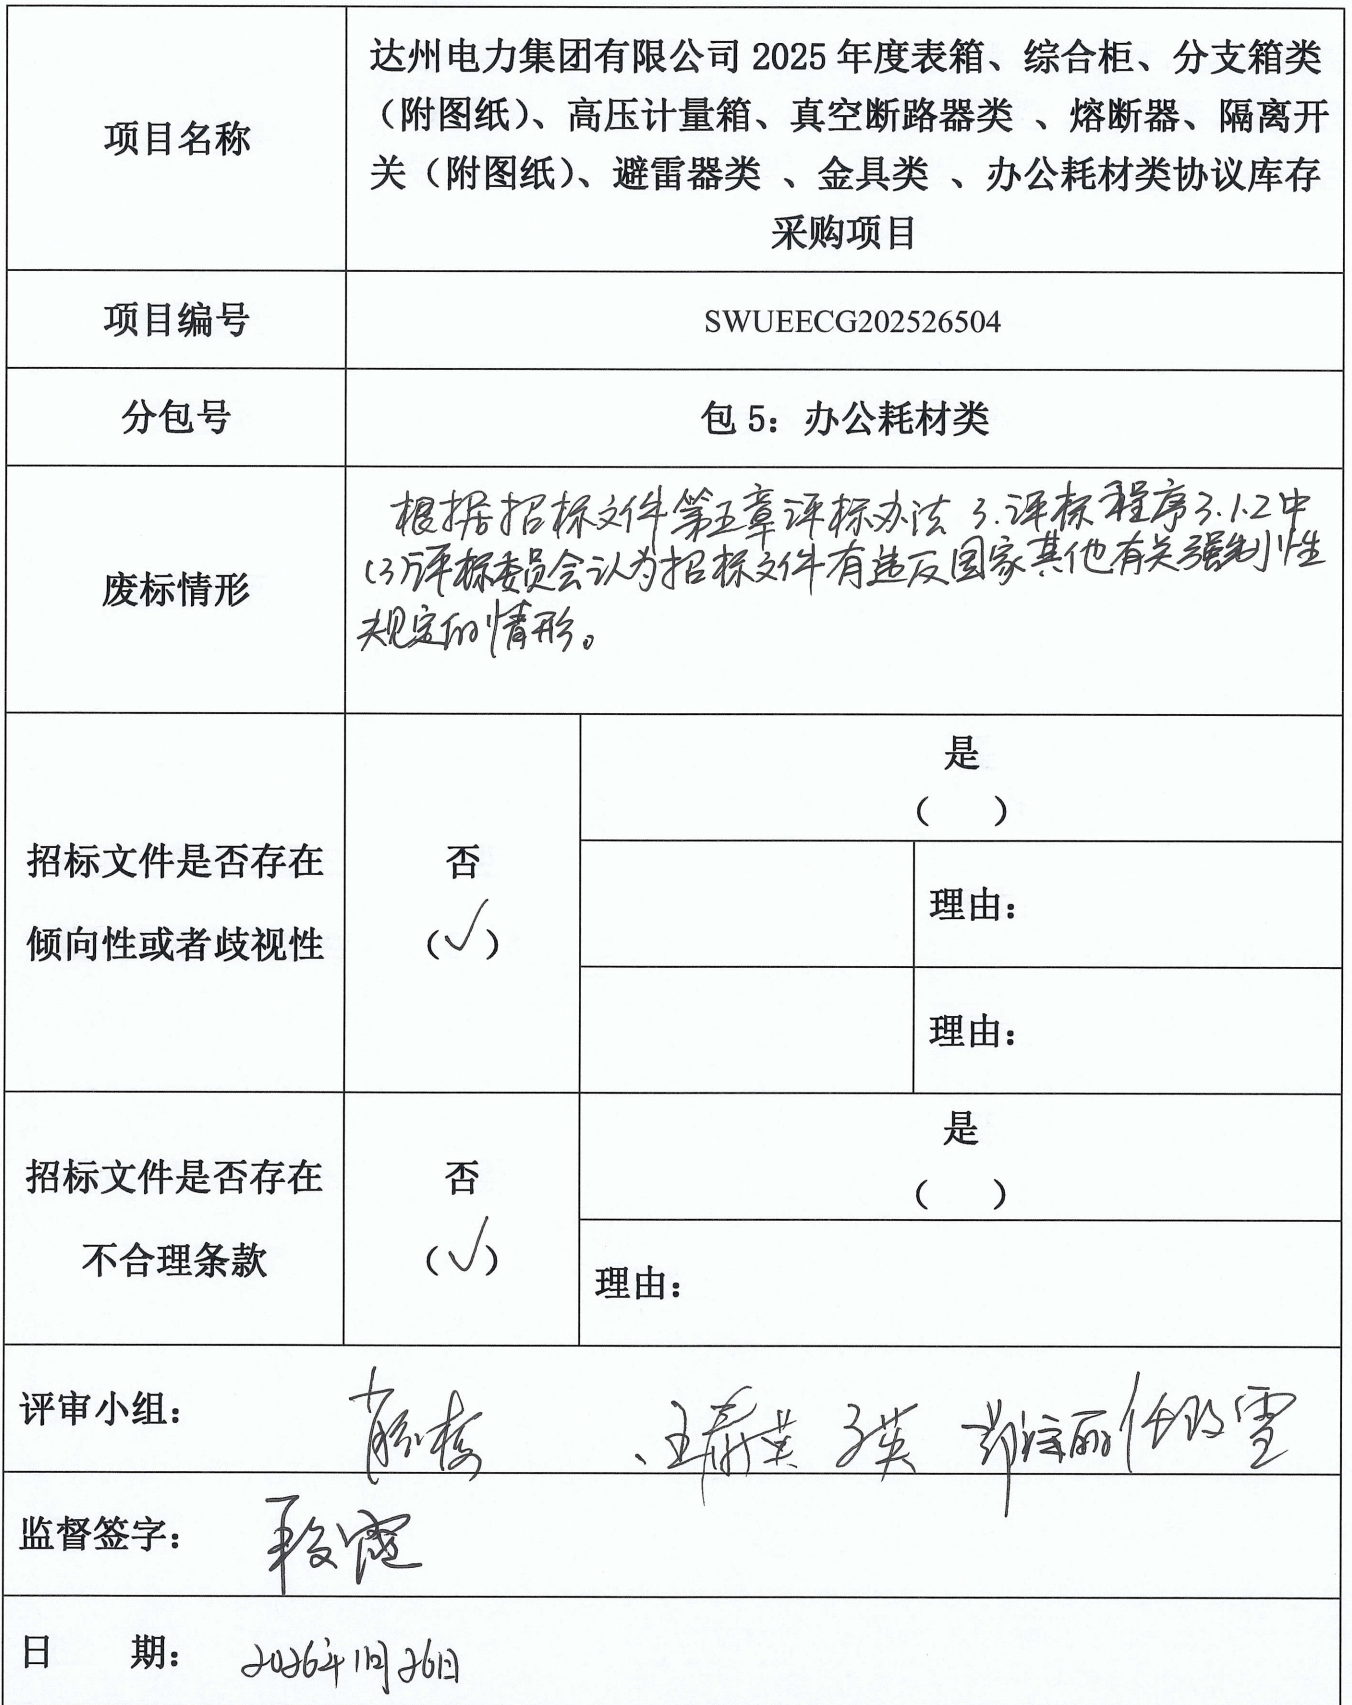 项目名称
达州电力集团有限公司 2025 年度表箱、综合柜、分支箱类
（附图纸）、高压计量箱、真空断路器类 、熔断器、隔离开
关（附图纸）、避雷器类 、金具类 、办公耗材类协议库存
采购项目
项目编号
SWUEECG202526504
分包号
包 5：办公耗材类
废标情形
根据招标文件第五章评标办法 3.评标程序3.1.2中
(3)评标委员会认为招标文件有违反国家其他有关强制性
规定的情形。
招标文件是否存在
倾向性或者歧视性
否
（√）
是
（ ）
理由：
理由：
招标文件是否存在
不合理条款
否
（√）
是
（ ）
理由：
评审小组：
监督签字：
日 期：
26日